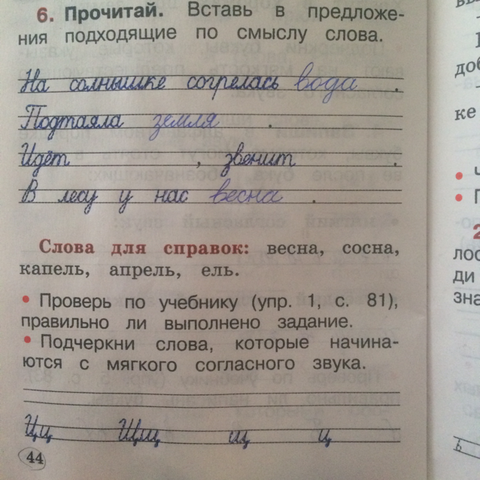 6. Прочитай. Вставь в предложе-
ния подходящие по смыслу слова.
На солнышке согрелась вода .
Подтаяла земля .
Идёт , звенит .
В лесу у нас весна .
Слова для справок: весна, сосна,
капель, апрель, ель.
• Проверь по учебнику (упр. 1, с. 81),
правильно ли выполнено задание.
• Подчеркни слова, которые начина-
ются с мягкого согласного звука.
Цц Щщ щ ц
44
доб
ке
•
•
2
лос
ди
зна
ь